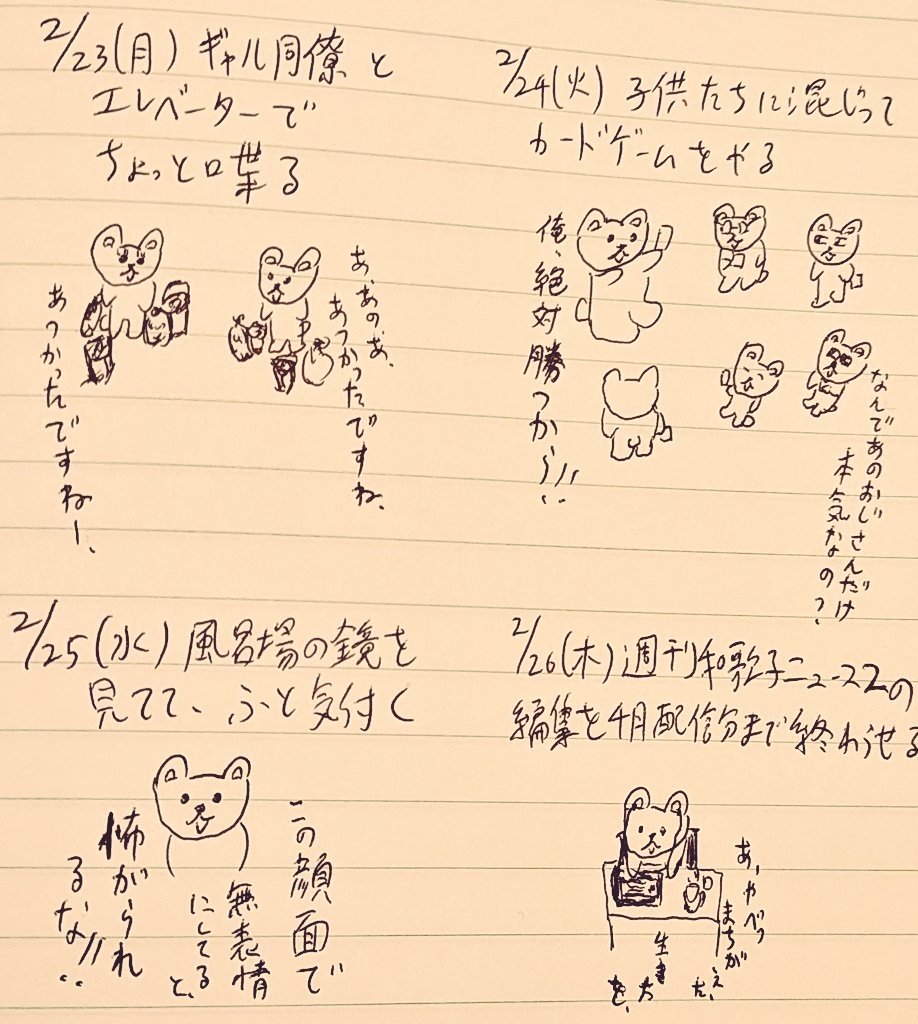 2/23(月) ギャル同僚と
エレベーターで
ちょっと喋る
あ、あのぉ、
あつかったですね、
あつかったですねー、
2/24(火) 子供たちに混じって
カードゲームをやる
俺、絶対勝つから!!
なんであのおじさんだけ
本気なの?
2/25(水) 風呂場の鏡を
見てて、ふと気付く
この顔面で
無表情
にしてると、
怖がられ
るな!!
2/26(木) 週刊和歌子ニュース2の
編集を4月配信分まで終わらせる
あ、やべっ
まちが
えた、
生き方
を、